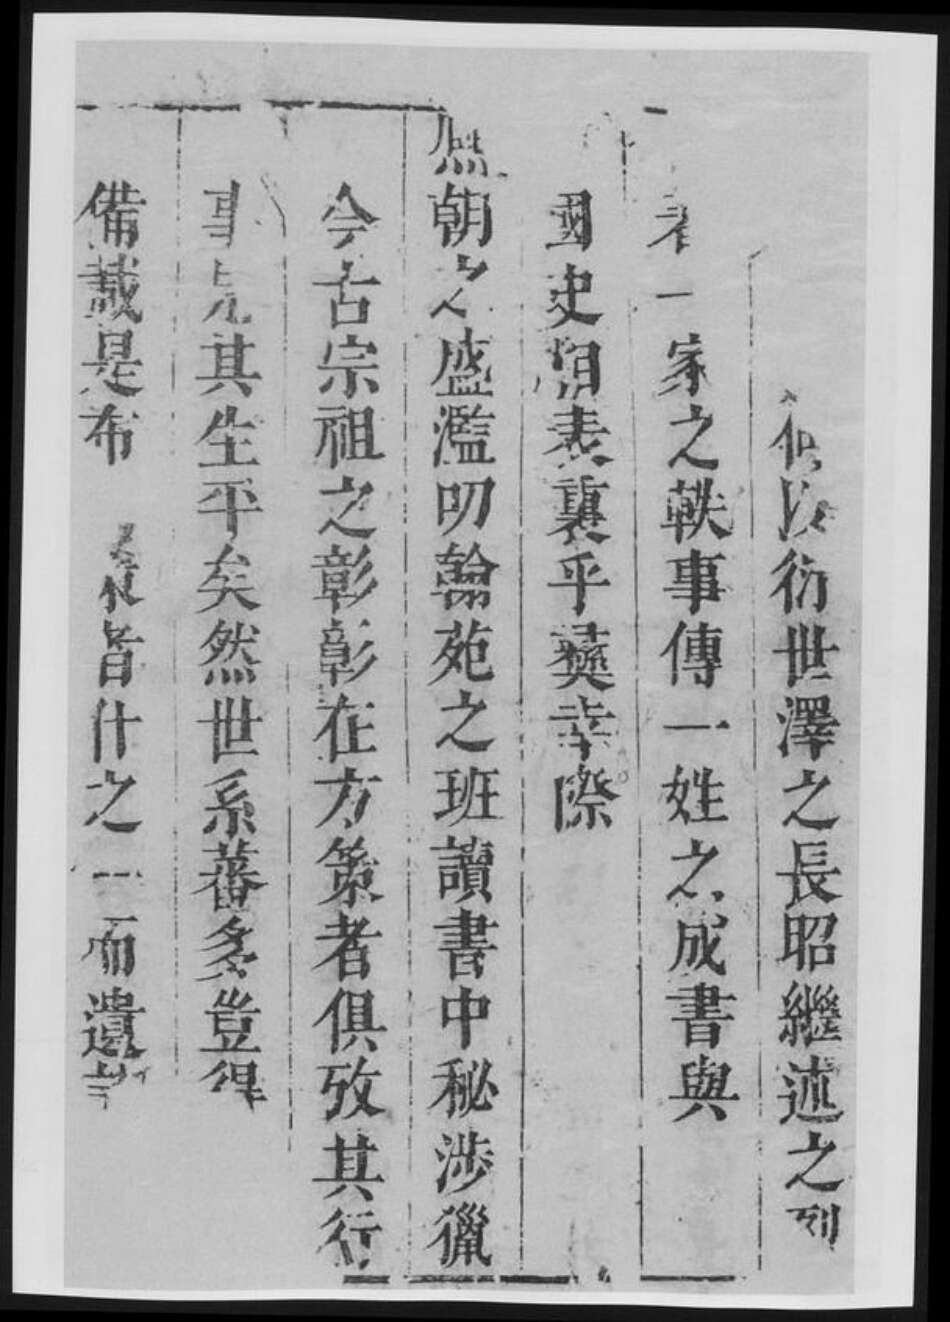 衍世澤之長昭繼述之列
者一家之軼事傳一姓之成書與
國史相表裏乎蕤幸際
熙朝之盛濫叨翰苑之班讀書中秘涉獵
今古宗祖之彰彰在方策者俱攷其行
事見其生平矣然世系蕃多豈得
備載是布 者什之一而遺